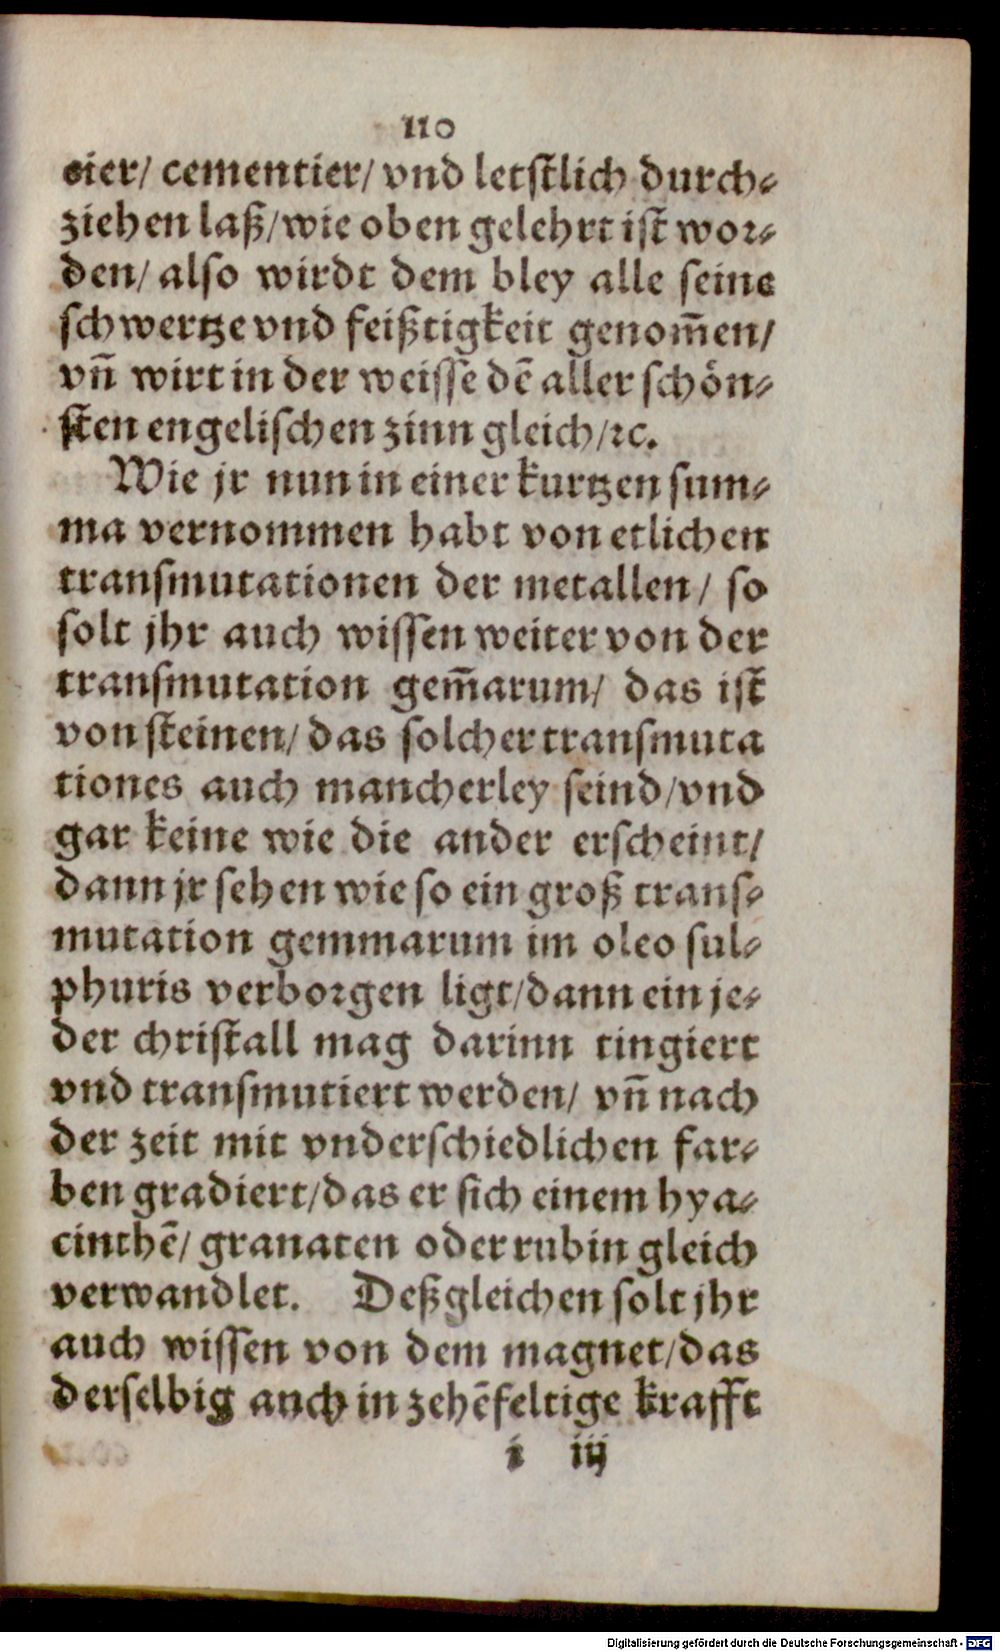 110
cier/ cementier/ vnd letstlich durch⸗
ziehen laß/ wie oben gelehrt ist wor⸗
den/ also wirdt dem bley alle seine
schwertze vnd feißtigkeit genom̄en/
vn̄ wirt in der weisse dē aller schön⸗
sten engelischen zinn gleich/ ꝛc.
Wie jr nun in einer kurtzen sum⸗
ma vernommen habt von etlichen
transmutationen der metallen/ so
solt jhr auch wissen weiter von der
transmutation gem̄arum/ das ist
von steinen/ das solcher transmuta
tiones auch mancherley seind/ vnd
gar keine wie die ander erscheint/
dann jr sehen wie so ein groß trans⸗
mutation gemmarum im oleo sul⸗
phuris verborgen ligt/ dann ein je⸗
der christall mag darinn tingiert
vnd transmutiert werden/ vn̄ nach
der zeit mit vnderschiedlichen far⸗
ben gradiert/ das er sich einem hya⸗
cinthē/ granaten oder rubin gleich
verwandlet. Deßgleichen solt jhr
auch wissen von dem magnet/ das
derselbig auch in zehēfeltige krafft
i iij
Digitalisierung gefördert durch die Deutsche Forschungsgemeinschaft - DFG